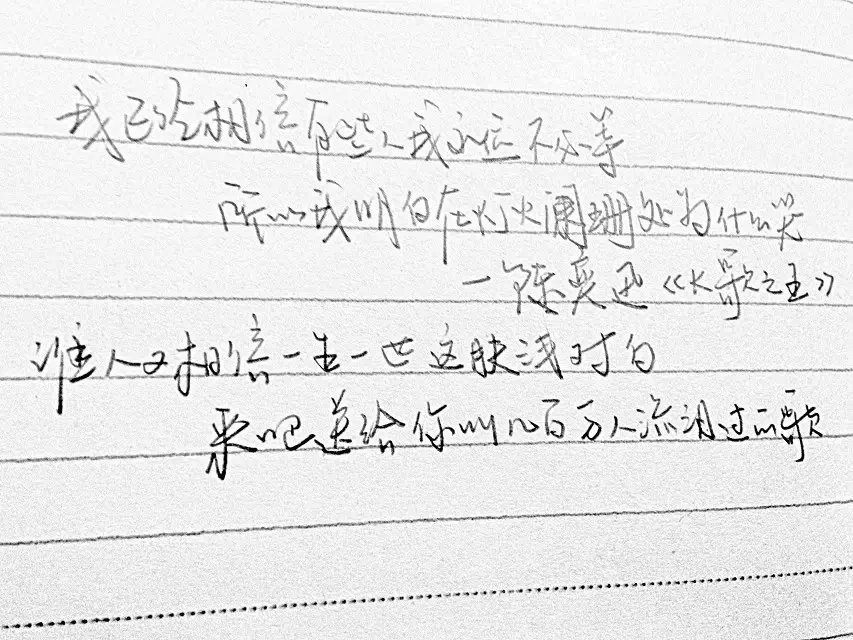 我已经相信有些人我永远不必等
所以我明白在灯火阑珊处为什么哭
一陈奕迅《K歌之王》
谁人又相信一生一世这肤浅对白
来吧送给你叫几百万人流泪过的歌